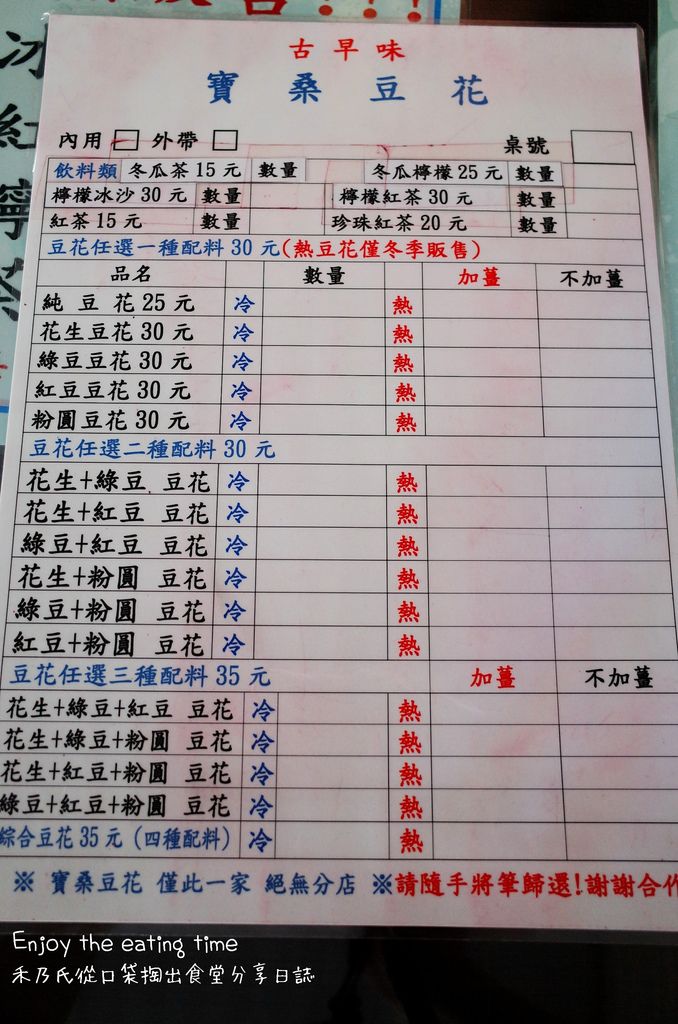 冰紅檸茶
古早味
寶桑豆花
內用 □ 外帶 □ 桌號
飲料類 冬瓜茶 15 元 數量 冬瓜檸檬 25 元 數量
檸檬冰沙 30 元 數量 檸檬紅茶 30 元 數量
紅茶 15 元 數量 珍珠紅茶 20 元 數量
豆花任選一種配料 30 元(熱豆花僅冬季販售)
品名 數量 加薑 不加薑
純 豆 花 25 元 冷 熱
花生豆花 30 元 冷 熱
綠豆豆花 30 元 冷 熱
紅豆豆花 30 元 冷 熱
粉圓豆花 30 元 冷 熱
豆花任選二種配料 30 元
花生+綠豆 豆花 冷 熱
花生+紅豆 豆花 冷 熱
綠豆+紅豆 豆花 冷 熱
花生+粉圓 豆花 冷 熱
綠豆+粉圓 豆花 冷 熱
紅豆+粉圓 豆花 冷 熱
豆花任選三種配料 35 元 加薑 不加薑
花生+綠豆+紅豆 豆花 冷 熱
花生+綠豆+粉圓 豆花 冷 熱
花生+紅豆+粉圓 豆花 冷 熱
綠豆+紅豆+粉圓 豆花 冷 熱
綜合豆花 35 元 (四種配料) 冷 熱
※ 寶桑豆花 僅此一家 絕無分店 ※請隨手將筆歸還!謝謝合作
Enjoy the eating time
禾乃氏從口袋掏出食堂分享日誌